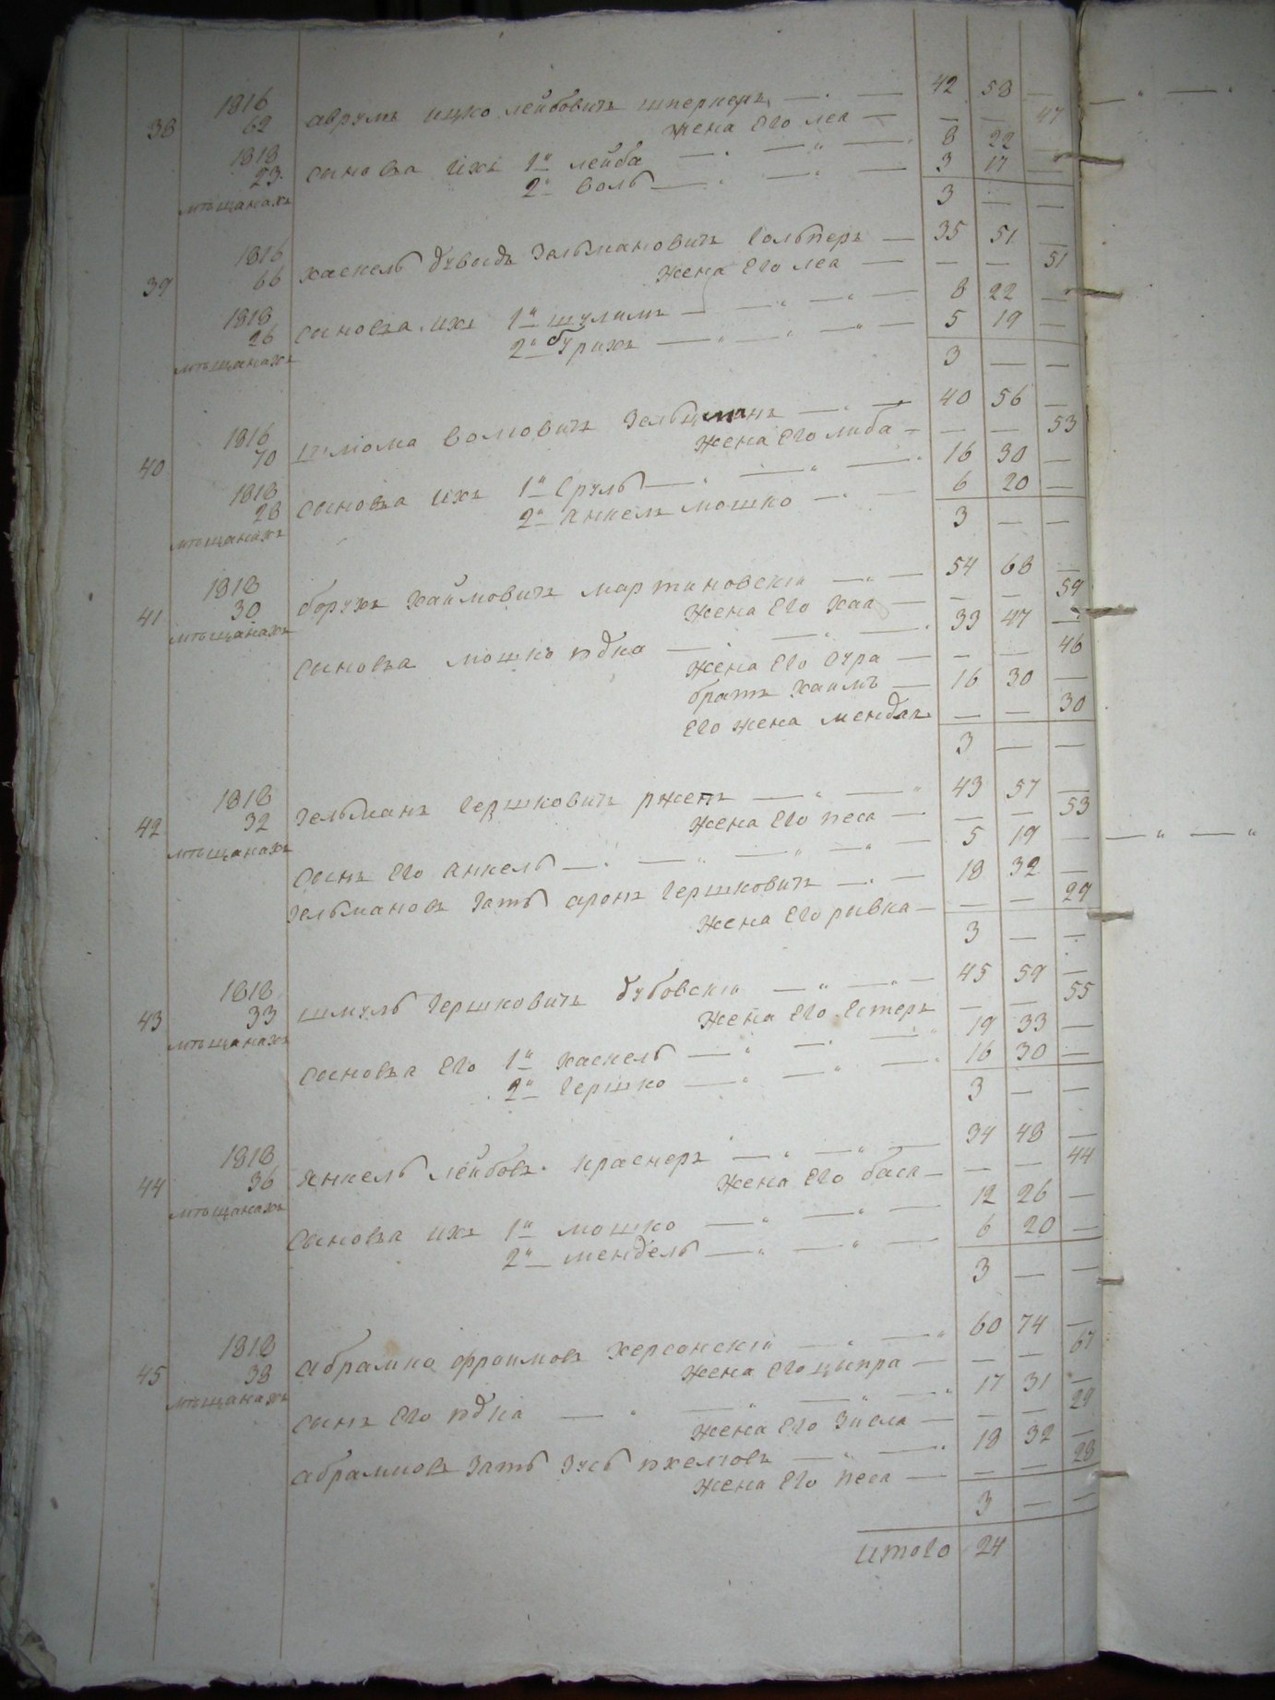 1816 аврумъ ицко лейбовичъ шпернеръ — 42 58 —
38 62 жена его леа — — — 47
1818 сыновья ихъ 1й лейба — 8 22 —
23 2й воль — 3 17 —
мѣщанахъ 3 — —
1816 хаскель дувидъ зельмановичъ гольперъ — 35 51 —
39 66 жена его леа — — — 51
1818 сыновья ихъ 1й шулимъ — 8 22 —
26 2й бурихъ — 5 19 —
мѣщанахъ 3 — —
1816 шлiома волковичъ зельцманъ — 40 56 —
40 70 жена его либа — — — 53
1818 сыновья ихъ 1й сруль — 16 30 —
28 2й анкель мошко — 6 20 —
мѣщанахъ 3 — —
1818 борухъ хаимовичъ мартиновскiй — 54 68 —
41 30 жена его хая — — — 59
мѣщанахъ
сыновья мошко юдка — 33 47 —
жена его сура — — — 46
братъ хаимъ — 16 30 —
его жена мендля — — 30
3 — —
1818 зельманъ гершковичъ — 43 57 —
42 32 жена его песа — — — 53
мѣщанахъ
сынъ его анкель — 5 19 —
зельмановъ зять аронъ гершковичъ — 18 32 —
жена его рывка — — — 29
3 — —
1818 шмуль гершковичъ дубовскiй — 45 59 —
43 33 жена его естеръ — — 55
мѣщанахъ
сыновья его 1й хаскель — 19 33 —
2й гершко — 16 30 —
3 — —
1818 янкель лейбовъ краснеръ — 34 48 —
44 36 жена его бася — — — 44
мѣщанахъ
сыновья ихъ 1й мошко — 12 26 —
2й мендель — 6 20 —
3 — —
1818 абрамко фроимовъ херсонскiй — 60 74 —
45 38 жена его ципра — — — 67
мѣщанахъ
сынъ его юдка — 17 31 —
жена его зисля — — — 29
абрамковъ зять зусь — 18 32 —
жена его песа — — — 28
3 — —
итого 24